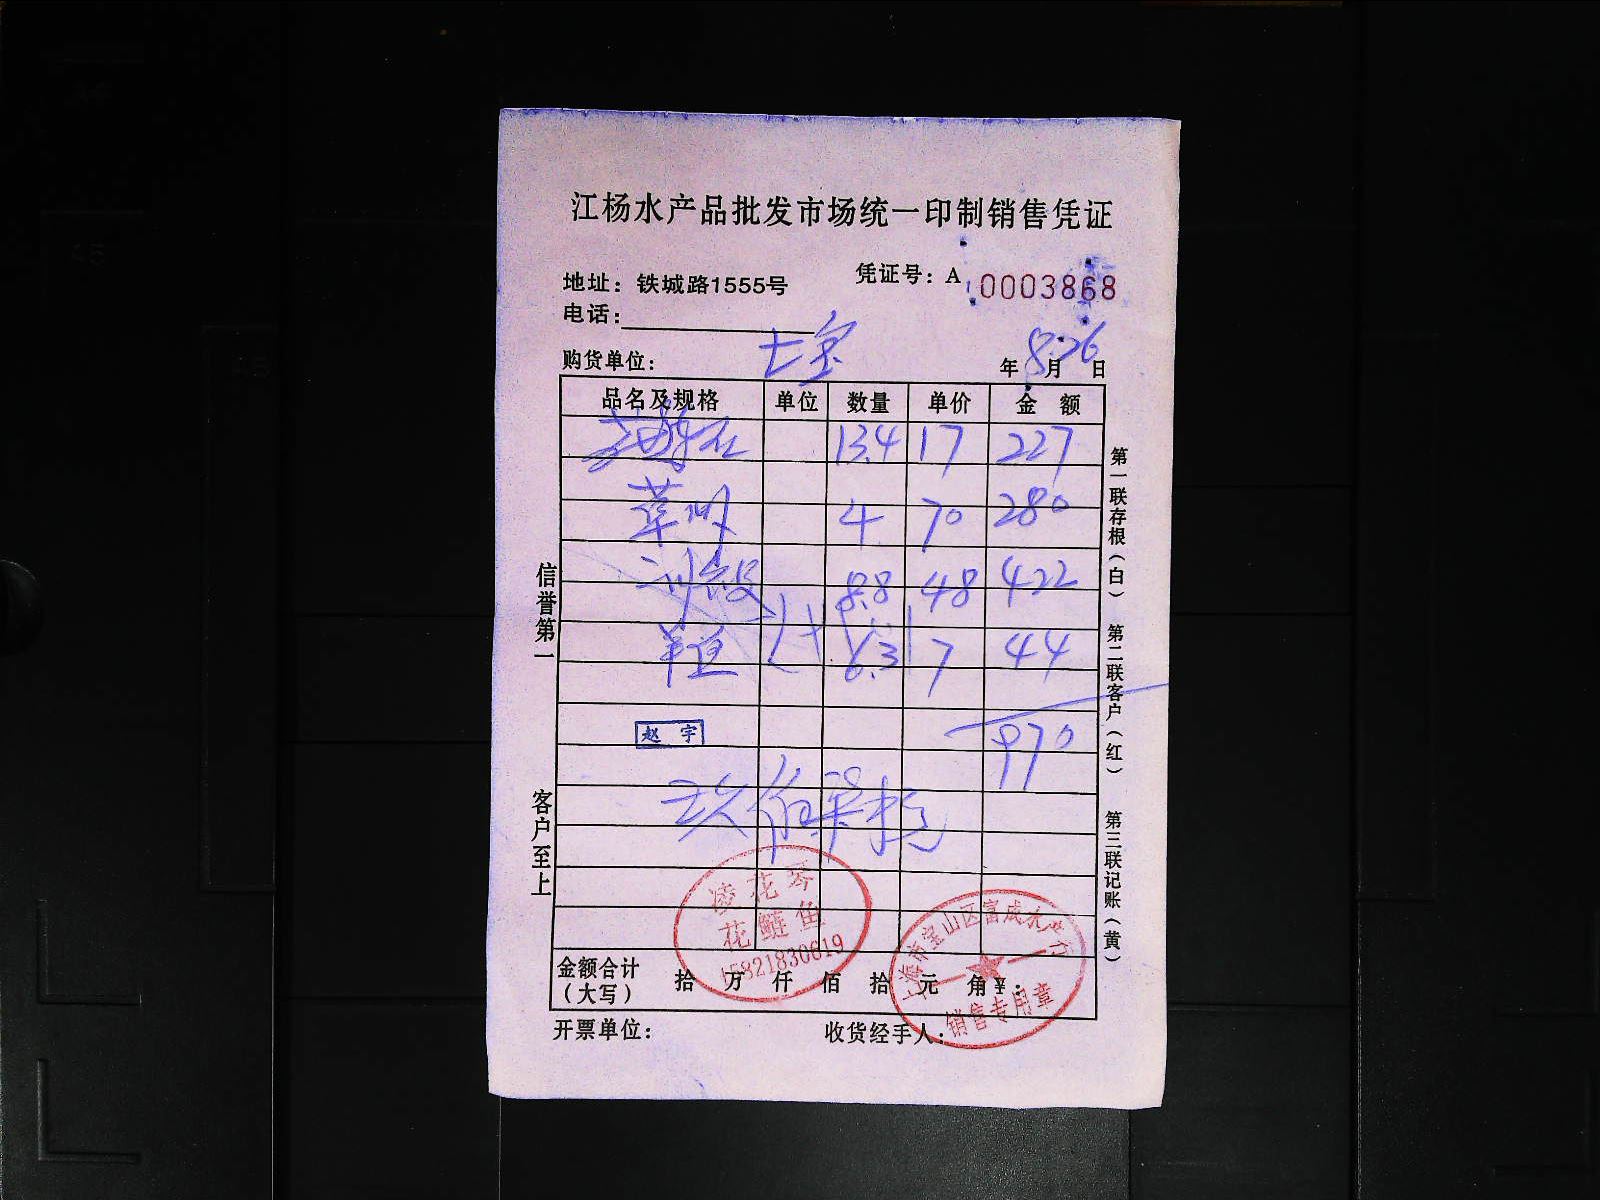 江杨水产品批发市场统一印制销售凭证
地址：铁城路1555号
凭证号：A 0003868
电话：
购货单位： 七宝
年 8月26日
品名及规格 单位 数量 单价 金额
13.4 17 227
草 4 70 280
8.8 48 422
6.3 7 44
970
赵宇
玖佰柒拾元
凌花琴
花鲢鱼
15821830619
上海市宝山区富成水产行
销售专用章
金额合计（大写） 拾 万 仟 佰 拾 元 角 ¥：
开票单位： 收货经手人：
信誉第一
客户至上
第一联存根（白）
第二联客户（红）
第三联记账（黄）